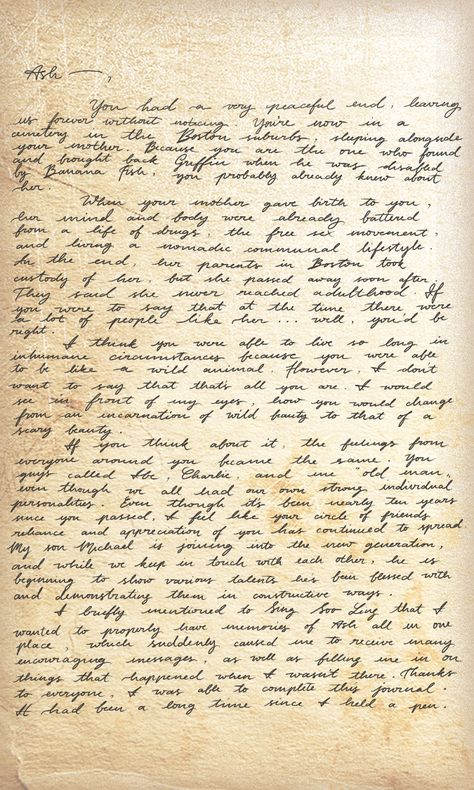 Ash —,
You had a very peaceful end, leaving
us forever without noticing. You're now in a
cemetery in the Boston suburbs, sleeping alongside
your mother. Because you are the one who found
and brought back Griffin when he was disabled
by Banana Fish, you probably already knew about
her.
When your mother gave birth to you,
her mind and body were already battered
from a life of drugs, the free sex movement,
and living a nomadic communal lifestyle.
In the end, her parents in Boston took
custody of her, but she passed away soon after.
They said she never reached adulthood. If
you were to say that at the time there were
a lot of people like her... well, you'd be
right.
I think you were able to live so long in
inhumane circumstances because you were able
to be like a wild animal. However, I don't
want to say that that's all you are. I would
see in front of my eyes, how you would change
from an incarnation of wild beauty to that of a
scary beauty.
If you think about it, the feelings from
everyone around you became the same. You
guys called Ibe, Charlie, and me "old man,
even though we all had our own strong individual
personalities. Even though it's been nearly ten years
since you passed, I feel like your circle of friends
reliance and appreciation of you has continued to spread
My son Michael is joining into the new generation,
and while we keep in touch with each other, he is
beginning to show various talents he's been blessed with
and demonstrating them in constructive ways.
I briefly mentioned to Sing Soo Ling that I
wanted to properly have memories of Ash all in one
place, which suddenly caused me to receive many
encouraging messages, as well as filling me in on
things that happened when I wasn't there. Thanks
to everyone, I was able to complete this journal.
It had been a long time since I held a pen.